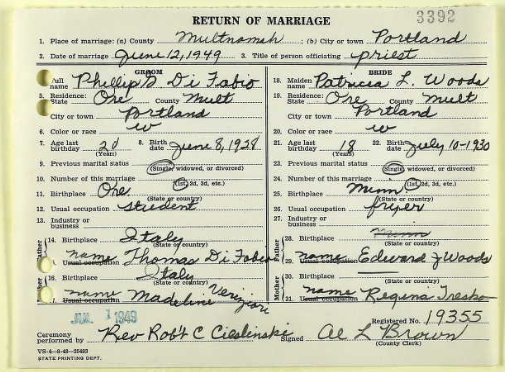 RETURN OF MARRIAGE 3392
1. Place of marriage: (a) County Multnomah ; (b) City or town Portland
2. Date of marriage June 12, 1949 3. Title of person officiating Priest
GROOM BRIDE
Full name Phillip D. Di Fabio 18. Maiden name Patricia L. Woods
5. Residence: State Ore County Mult 19. Residence: State Ore County Mult
City or town Portland City or town Portland
6. Color or race W 20. Color or race W
7. Age last birthday 20 (Years) 8. Birth date June 8, 1928 21. Age last birthday 18 (Years) 22. Birth date July 10-1930
9. Previous marital status (Single, widowed, or divorced) 23. Previous marital status (Single, widowed, or divorced)
10. Number of this marriage (1st, 2d, 3d, etc.) 24. Number of this marriage (1st, 2d, 3d, etc.)
11. Birthplace Ore. (State or country) 25. Birthplace Minn (State or country)
12. Usual occupation Student 26. Usual occupation fryer
13. Industry or business 27. Industry or business
Father 14. Birthplace Italy (State or country) Father 28. Birthplace Minn (State or country)
Usual occupation name Thomas Di Fabio 29. Usual occupation name Edward J Woods
Mother 16. Birthplace Italy (State or country) Mother 30. Birthplace (State or country)
Usual occupation name Madeline 31. Usual occupation name Regina
1949 Registered No. 19355
Ceremony performed by Rev Robt C Cieslinski Signed Al L Brown
(County Clerk)
STATE PRINTING DEPT.